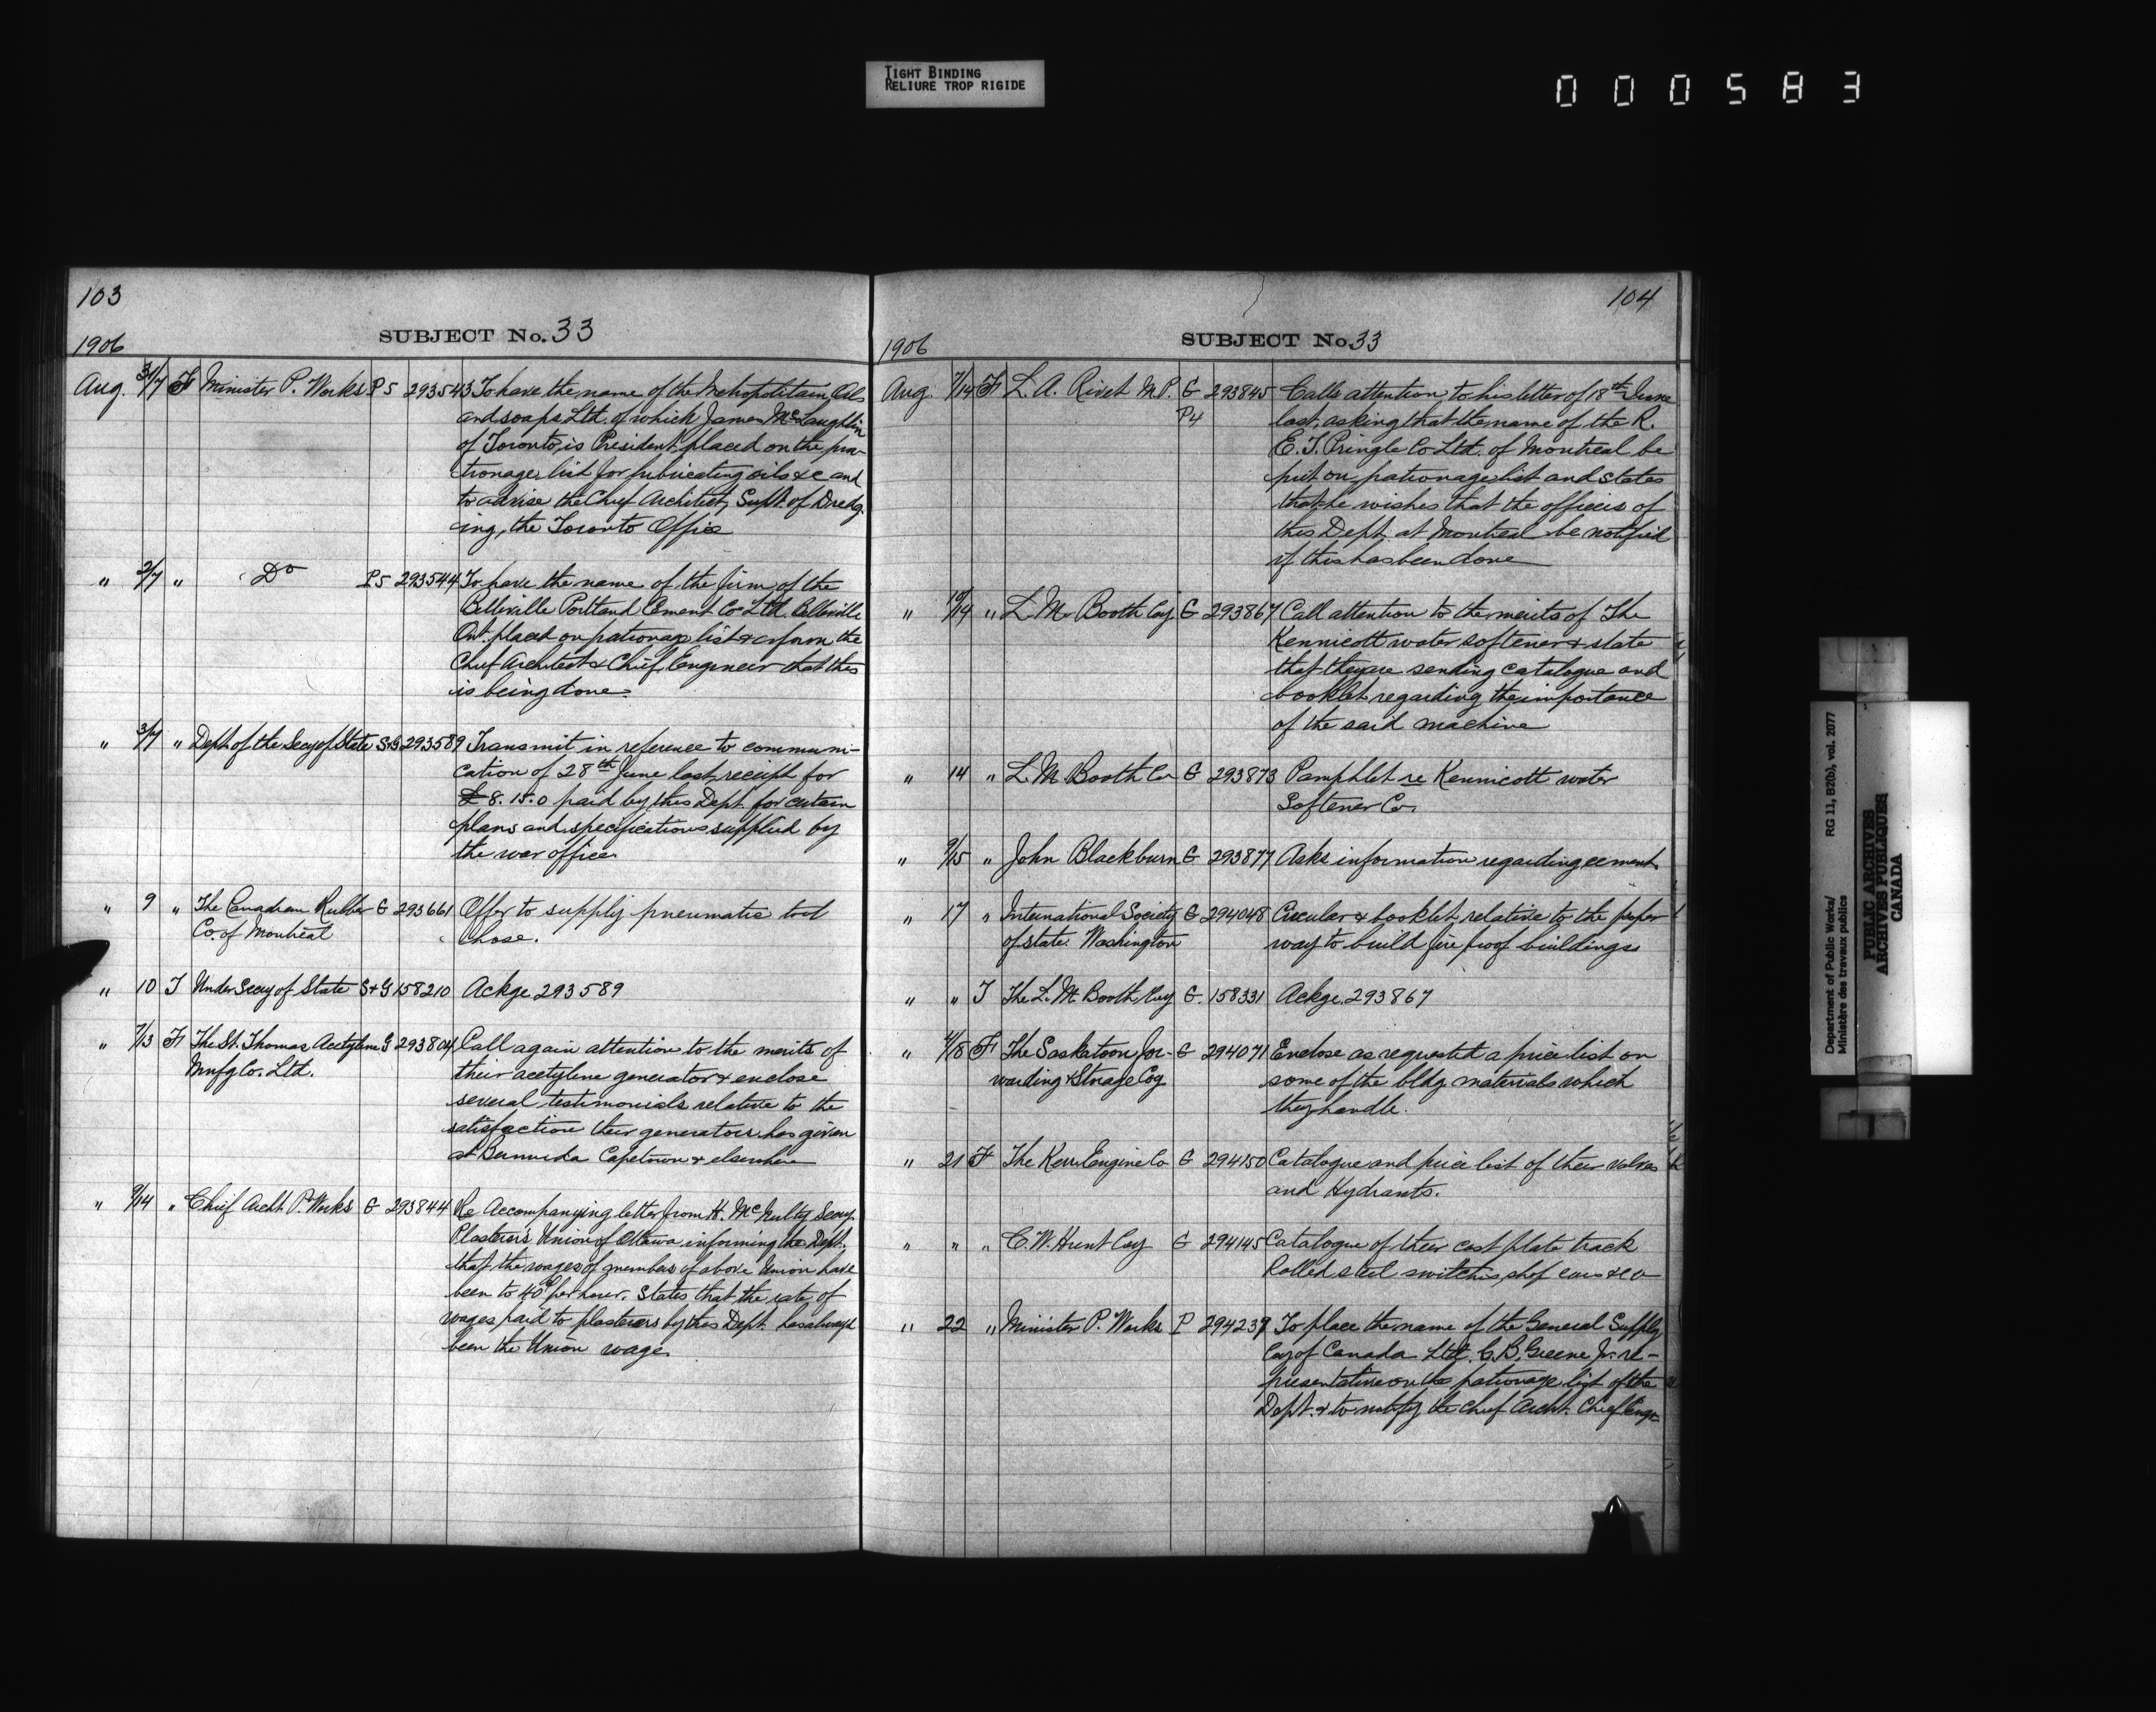 TIGHT BINDING
RELIURE TROP RIGIDE
000583
103
SUBJECT No. 33
1906
Aug. 31/7 F Minister P. Works P5 293543 To have the name of the Metropolitain Oils
and soaps Ltd. of which James McLaughlin
of Toronto, is President placed on the pa-
tronage list for lubricating oils &c and
to advise the Chief Architect, Supt. of Dredg-
ing, the Toronto Office
" 2/7 " Do P5 293544 To have the name of the firm of the
Belleville Portland Cement Co Ltd. Belleville
Ont. placed on patronage list & inform the
Chief Architect & Chief Engineer that this
is being done.
" 3/7 " Dept. of the Secy of State S&G 293589 Transmit in reference to communi-
cation of 28th June last, receipt for
£8.15.0 paid by this Dept. for certain
plans and specifications supplied by
the war office.
" 9 " The Canadian Rubber G 293661 Offer to supply pneumatic tool
Co. of Montreal hose.
" 10 T Under Secy of State S&G 158210 Ackge 293589
" 7/13 F The St. Thomas Acetylene G 293804 Call again attention to the merits of
Mnfg Co. Ltd. their acetylene generator & enclose
several testimonials relative to the
satisfaction their generators has given
at Bermuda Capetown & elsewhere
" 9/14 " Chief Archt. P. Works G 293844 Re Accompanying letter from H. McNulty Secy.
Plasterers Union of Ottawa informing the Dept.
that the wages of members of above Union have
been to 40¢ per hour. States that the rate of
wages paid to plasterers by this Dept. has always
been the Union wage.
104
SUBJECT No 33
1906
Aug. 7/14 F L. A. Rivet M.P. G 293845 Calls attention to his letter of 18th June
P4 last, asking that the name of the R.
E. T. Pringle Co Ltd. of Montreal be
put on patronage list and states
that he wishes that the officers of
this Dept. at Montreal be notified
if this has been done
" 10/14 " L. M. Booth Coy. G 293867 Call attention to the merits of The
Kennicott water softener & state
that they are sending catalogue and
booklet regarding the importance
of the said machine
" 14 " L. M. Booth Co G 293873 Pamphlet re Kennicott water
Softener Co.
" 9/15 " John Blackburn G 293877 Asks information regarding cement.
" 17 " International Society G 294048 Circular & booklet relative to the proper
of state. Washington way to build fire proof buildings
" " T The L. M. Booth Coy G. 158331 Ackge. 293867
" 4/18 F The Saskatoon For- G 294071 Enclose as requested a price list on
warding & Storage Coy some of the bldg materials which
they handle.
" 21 F The Kerr Engine Co G 294150 Catalogue and price list of their valves
and Hydrants.
" " " C. W. Hunt Coy G 294145 Catalogue of their cast plate track
Rolled steel switches, shop cars &co
" 22 " Minister P. Works P 294239 To place the name of the General Supply
Coy of Canada Ltd. C. B. Greene Jr. re-
presentative on the patronage list of the
Dept. & to notify the Chief Archt. Chief Engr.
Department of Public Works/
Ministère des travaux publics
RG 11, B2(b), vol. 2077
PUBLIC ARCHIVES
ARCHIVES PUBLIQUES
CANADA